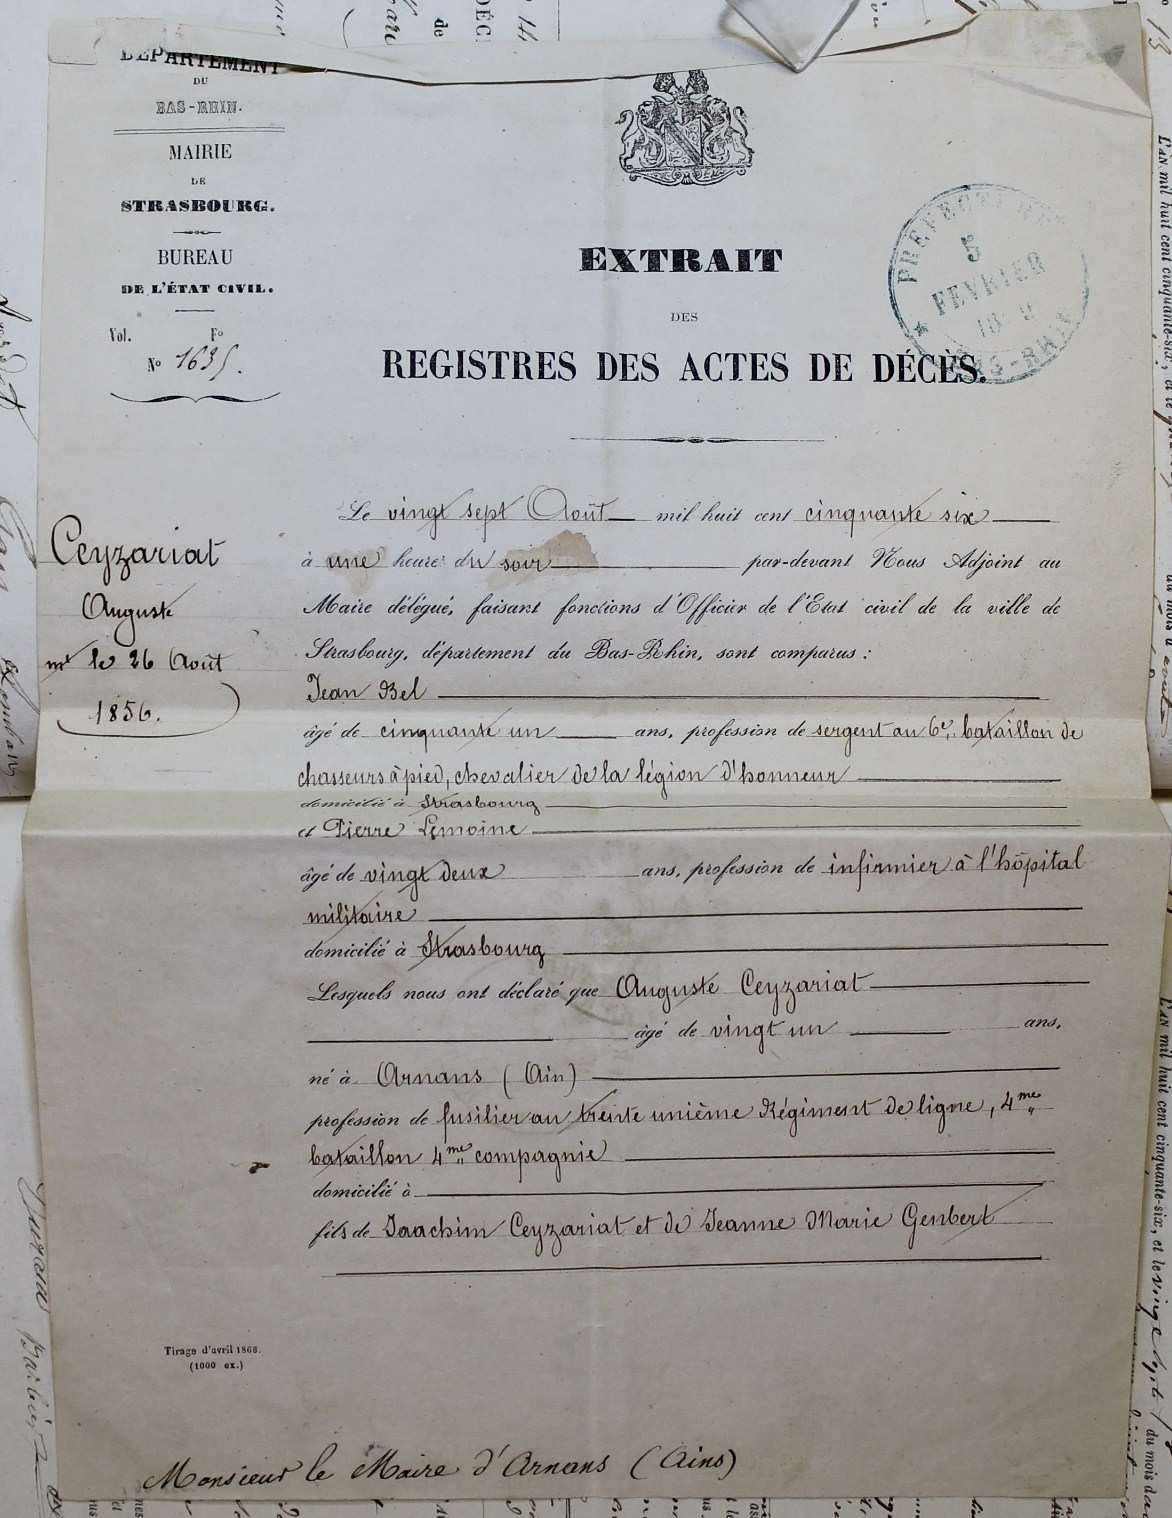 DÉPARTEMENT
DU
BAS-RHIN.
MAIRIE
DE
STRASBOURG.
BUREAU
DE L'ÉTAT CIVIL.
Vol. Fo
No 1635.
EXTRAIT
DES
REGISTRES DES ACTES DE DÉCÈS.
PRÉFECTURE
5
FEVRIER
BAS-RHIN
Ceyzariat
Auguste
mt le 26 Août
1856.
Le vingt sept Août mil huit cent cinquante six
à une heure du soir par-devant Nous Adjoint au
Maire délégué, faisant fonctions d'Officier de l'Etat civil de la ville de
Strasbourg, département du Bas-Rhin, sont comparus :
Jean Bel
âgé de cinquante un ans, profession de sergent au 6e bataillon de
chasseurs à pied, chevalier de la légion d'honneur
domicilié à Strasbourg
et Pierre Lemoine
âgé de vingt deux ans, profession de infirmier à l'hôpital
militaire
domicilié à Strasbourg
Lesquels nous ont déclaré que Auguste Ceyzariat
âgé de vingt un ans,
né à Arnans (Ain)
profession de fusilier au trente unième Régiment de ligne, 4me
bataillon 4me compagnie
domicilié à
fils de Joachim Ceyzariat et de Jeanne Marie Genbert
Tirage d'avril 1868.
(1000 ex.)
Monsieur le Maire d'Arnans (Ains)